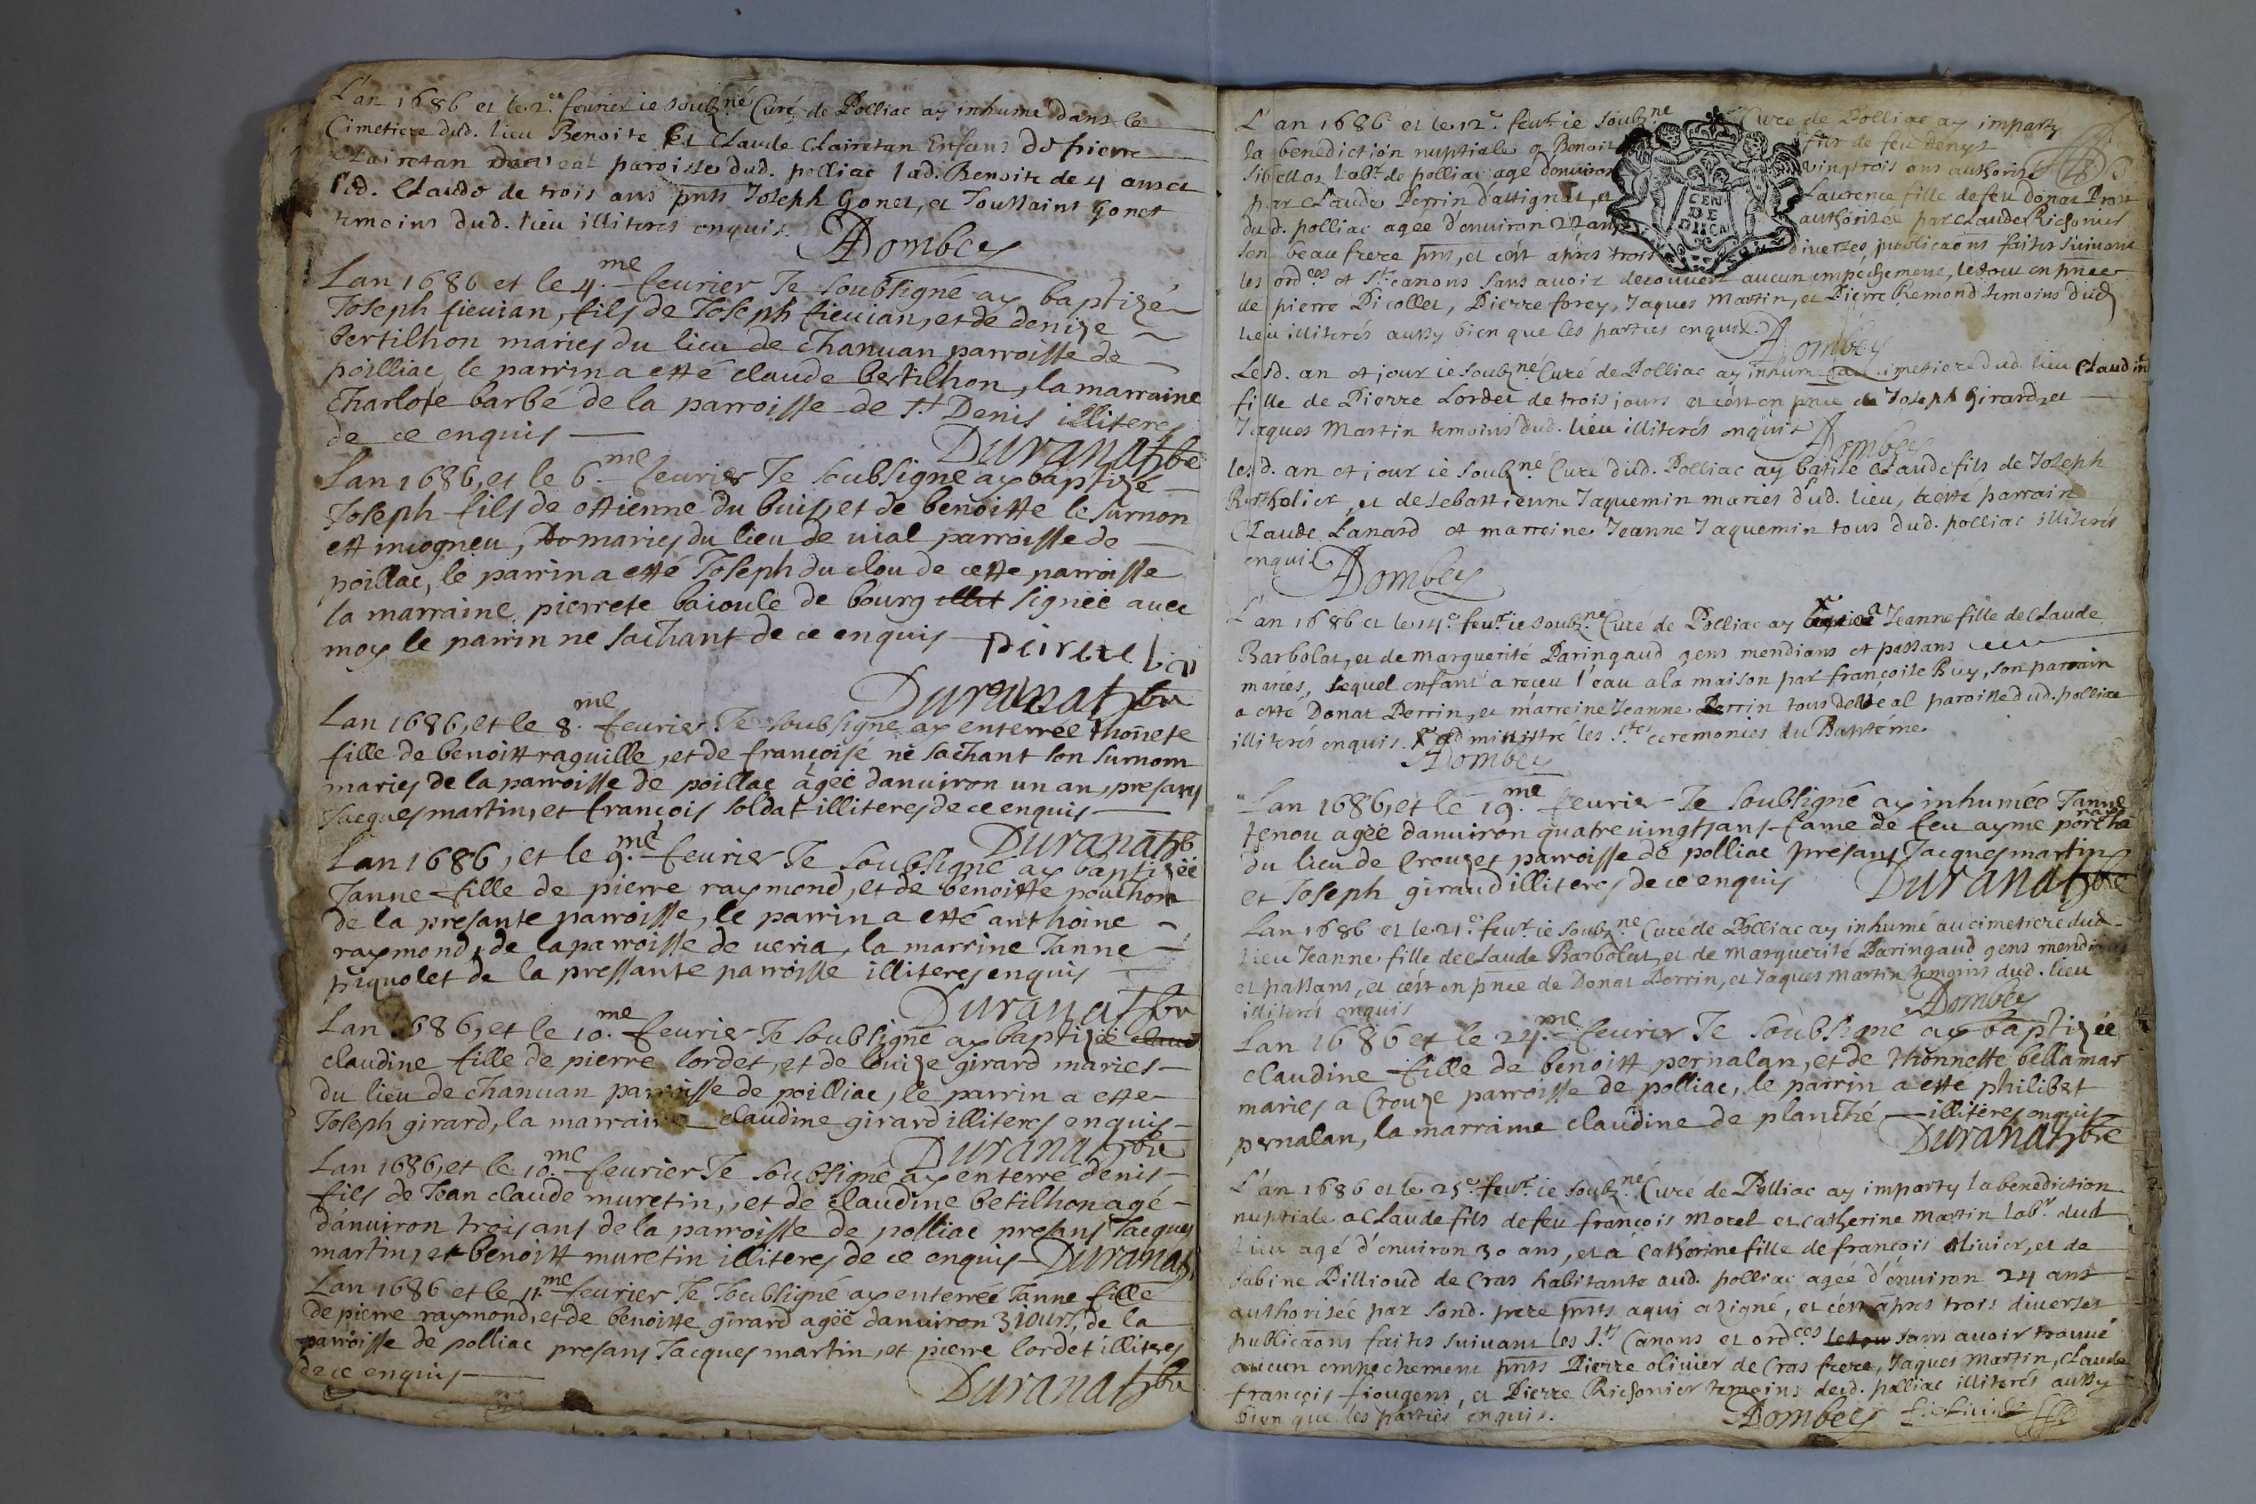 L'an 1686 et le 2.e fevrier ie soubz.né Curé de Polliac ay inhumé dans le
Cimetiere dud. lieu Benoite et Claude Clairetan Enfans de pierre
Clairetan paroisse dud. polliac lad. Benoite de 4 ans et
led. Claude de trois ans pnts Joseph Gonet, et Toussaint Gonet
temoins dud. lieu illiterés enquis. Dombey
Lan 1686 et le 4.me fevrier Je soubsigné ay baptizé
Joseph fievian, fils de Joseph fievian, et de denize
bertilhon maries du lieu de Chanvan parroisse de
poilliac, le parrin a esté claude bertilhon, la marraine
Charlote barbé de la parroisse de St Denis illiteres
de ce enquis Duranat pbre
Lan 1686, et le 6.me fevrier Je soubsigné ay baptizé
Joseph fils de estienne du buis, et de benoitte le surnon
est incogneu, maries du lieu de vial parroisse de
poillac, le parrin a esté Joseph du clou de cette parroisse
la marraine pierrete baioule de bourg illit signéé avec
moy le parrin ne sachant de ce enquis
Duranat pbre
Lan 1686, et le 8.me fevrier Je soubsigné ay enterréé thonete
fille de benoitt raguille, et de françoise ne sachant son surnom
maries de la parroisse de poillac agéé danviron un an, presans
Jacques martin, et françois soldat illiteres de ce enquis
Duranat pb
Lan 1686, et le 9.me fevrier Je soubsigné ay baptizéé
Janne fille de pierre raymond, et de benoitte pouchon
de la presante parroisse, le parrin a esté anthoine
raymond, de la parroisse de veria, la marrine Janne
piquolet de la pressante parroisse illiteres enquis
Duranat pbre
Lan 1686, et le 10.me fevrier Je soubsigné ay baptizéé claud
claudine fille de pierre lordet, et de louize girard maries
du lieu de chanvan parroisse de poilliac, le parrin a este
Joseph girard, la marraine claudine girard illiteres enquis
Duranat pbre
Lan 1686, et le 10.me fevrier Je soubsigné ay enterré denis
fils de Jean claude muretin, et de claudine betilhon agé
d'anviron trois ans de la parroisse de polliac presans Jacques
martin, et benoitt muretin illiteres de ce enquis Duranat
Lan 1686 et le 11.me fevrier Je soubsigné ay enterréé Janne fille
de pierre raymond, et de benoitte girard agéé danviron 3 iours, de la
parroisse de polliac presans Jacques martin, et pierre lordet illiteres
de ce enquis Duranat pbre
L'an 1686 et le 12.e fevr. ie soubz.ne Curé de Polliac ay imparty
la benediction nuptiale a Benoit fils de feu Denys
Sibellas lab.r de polliac agé d'environ vingtrois ans authorisé
par Claude Perrin d'attignat, et Laurence fille de feu donat Prost
dud. polliac agee d'environ 22 ans authorisée par Claude Richonier
son beau frere pnts, et c'est apres trois diverses publicaons faites suivant
CEN
DE
DIICA
les ord.ces et Sts canons sans avoir decouvert aucun empechement, le tout en pnce
de pierre Picollet, Pierre forey, Jaques Martin, et Pierre Remond temoins dud.
lieu illiterés aussy bien que les parties enquix. Dombey
Lesd. an et jour ie soubz.né Curé de Polliac ay inhum cimetiere dud. lieu Claudine
fille de Pierre Lordet de trois jours et c'est en pnce de Joseph Girard, et
Jaques Martin temoins dud. lieu illiterés enquis Dombey
lesd. an et jour ie soubz.né Curé dud. Polliac ay batisé Claude fils de Joseph
Bertholier, et de Sebastienne Jaquemin maries dud. lieu, a esté parrain
Claude Lanard et marreine Jeanne Jaquemin tous dud. polliac illiterés
enquis Dombey
L'an 1686 et le 14.e fevr. ie soubz.né Curé de Polliac ay Jeanne fille de Claude
Barbolat, et de Marguerite Paringaud gens mendians et passans
maries, lequel enfant a receu l'eau a la maison par françoise Buy, son parrain
a esté Donat Perrin, et marreine Jeanne Perrin tous de paroisse dud. polliac
illiterés enquis. administré les Stes ceremonies du Baptéme.
Dombey
Lan 1686, et le 19.me fevrier Je soubsigné ay inhuméé Janne
tenou agéé danviron quatre vingt ans fame de feu ayme
du lieu de Crouzet parroisse de polliac presans Jacques martin
et Joseph giraud illiteres de ce enquis Duranat pbre
Lan 1686 et le 21.e fevr. ie soubz.né Curé de Polliac ay inhumé au cimetiere dud.
lieu Jeanne fille de Claude Barbolat et de Marguerite Paringaud gens mendians
et passans, et c'est en pnce de Donat Perrin, et Jaques Martin temoins dud. lieu
illiterés enquis Dombey
Lan 1686 et le 24.me fevrier Je soubsigné ay baptizéé
claudine fille de benoitt pernalan, et de thonnette bellamar
maries a Crouze parroisse de polliac, le parrin a esté philibert
pernalan, la marraine claudine de planché illiteres enquis
Duranat pbre
L'an 1686 et le 25.e fevr. ie soubz.né Curé de Polliac ay imparty la benediction
nuptiale a Claude fils de feu françois Morel et catherine Martin lab.r dud
lieu agé d'environ 30 ans, et a Catherine fille de françois Olivier, et de
Sabine Pillioud de Cras habitante aud. polliac agéé d'environ 24 ans
authorisée par sond. pere pnts aqui a signé, et c'est apres trois diverses
publicaons faites suivant les Sts Canons et ord.ces sans avoir trouvé
aucun empechement pnts Pierre Olivier de Cras frere, Jaques Martin, Claude
françois fiougens, et Pierre Richonier temoins dud. polliac illiterés aussy
bien que les parties enquis. Dombey